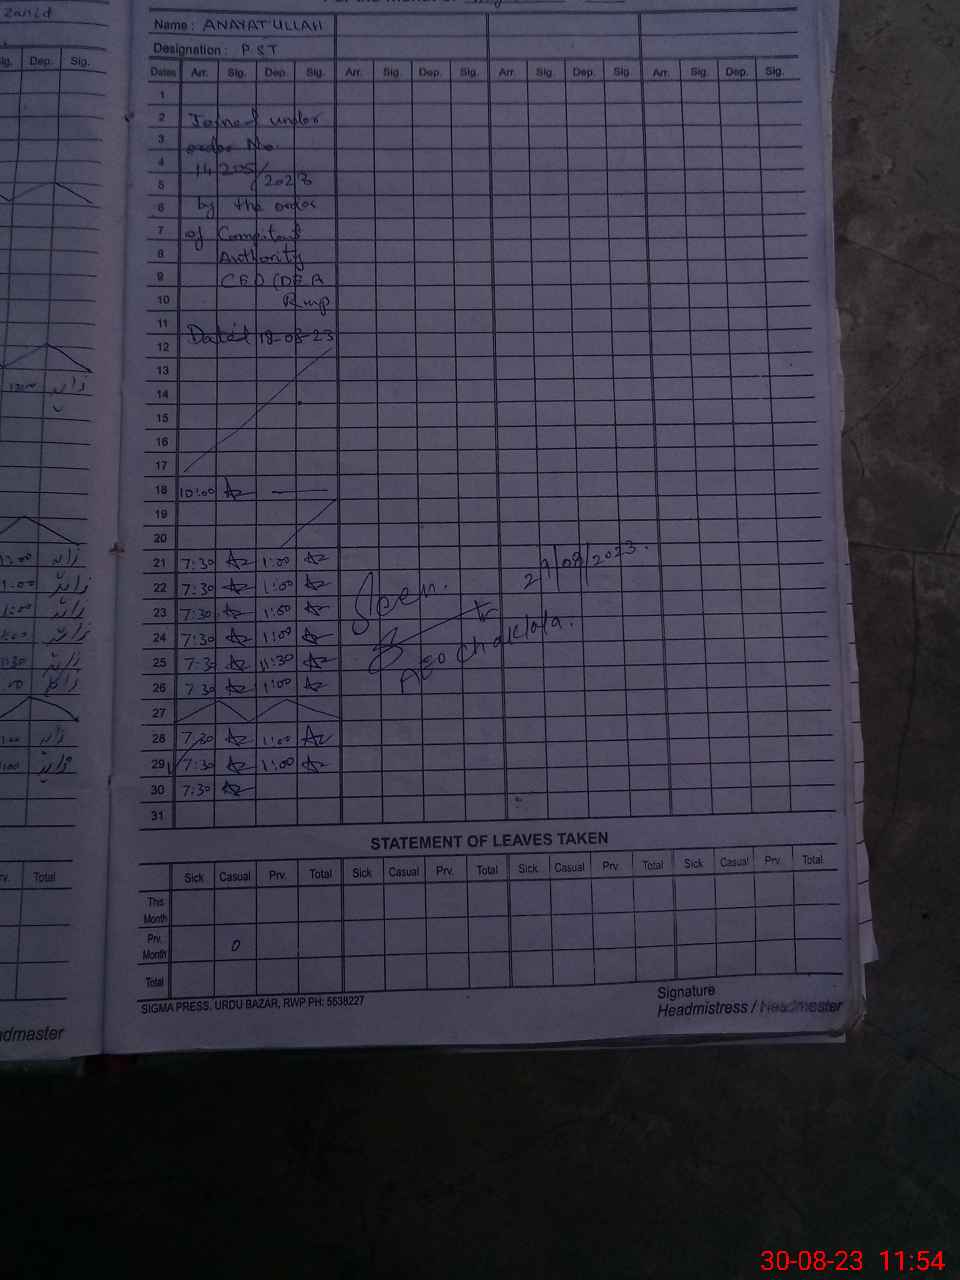 Zahid
Name : ANAYAT ULLAH
Designation : PST
Sig. Dep. Sig.
Dates Arr. Sig. Dep. Sig. Arr. Sig. Dep. Sig. Arr. Sig. Dep. Sig. Arr. Sig. Dep. Sig.
1
2 Joined under
3 order No.
4 14205/2023
5
6 by the order
7 of Compitant
8 Authority
9 CEO (DEA
10 Rwp
11
12 Dated 18-08-23
13
14
15
16
17
18 10:00
19
20
21 7:30 1:00
22 7:30 1:00
23 7:30 1:00
24 7:30 1:00
25 7:30 11:30
26 7:30 1:00
27
28 7:30 1:00
29 7:30 1:00
30 7:30
31
Seen.
29/08/2023.
AEO Chaklala.
زاہد
زاہد
زاہد
زاہد
زاہد
زاہد
زاہد
زاہد
زاہد
STATEMENT OF LEAVES TAKEN
Sick Casual Prv. Total Sick Casual Prv. Total Sick Casual Prv. Total Sick Casual Prv. Total
This
Month
Prv.
Month 0
Total
rv. Total
SIGMA PRESS, URDU BAZAR, RWP PH: 5538227
Signature
Headmistress / Headmaster
admaster
30-08-23 11:54